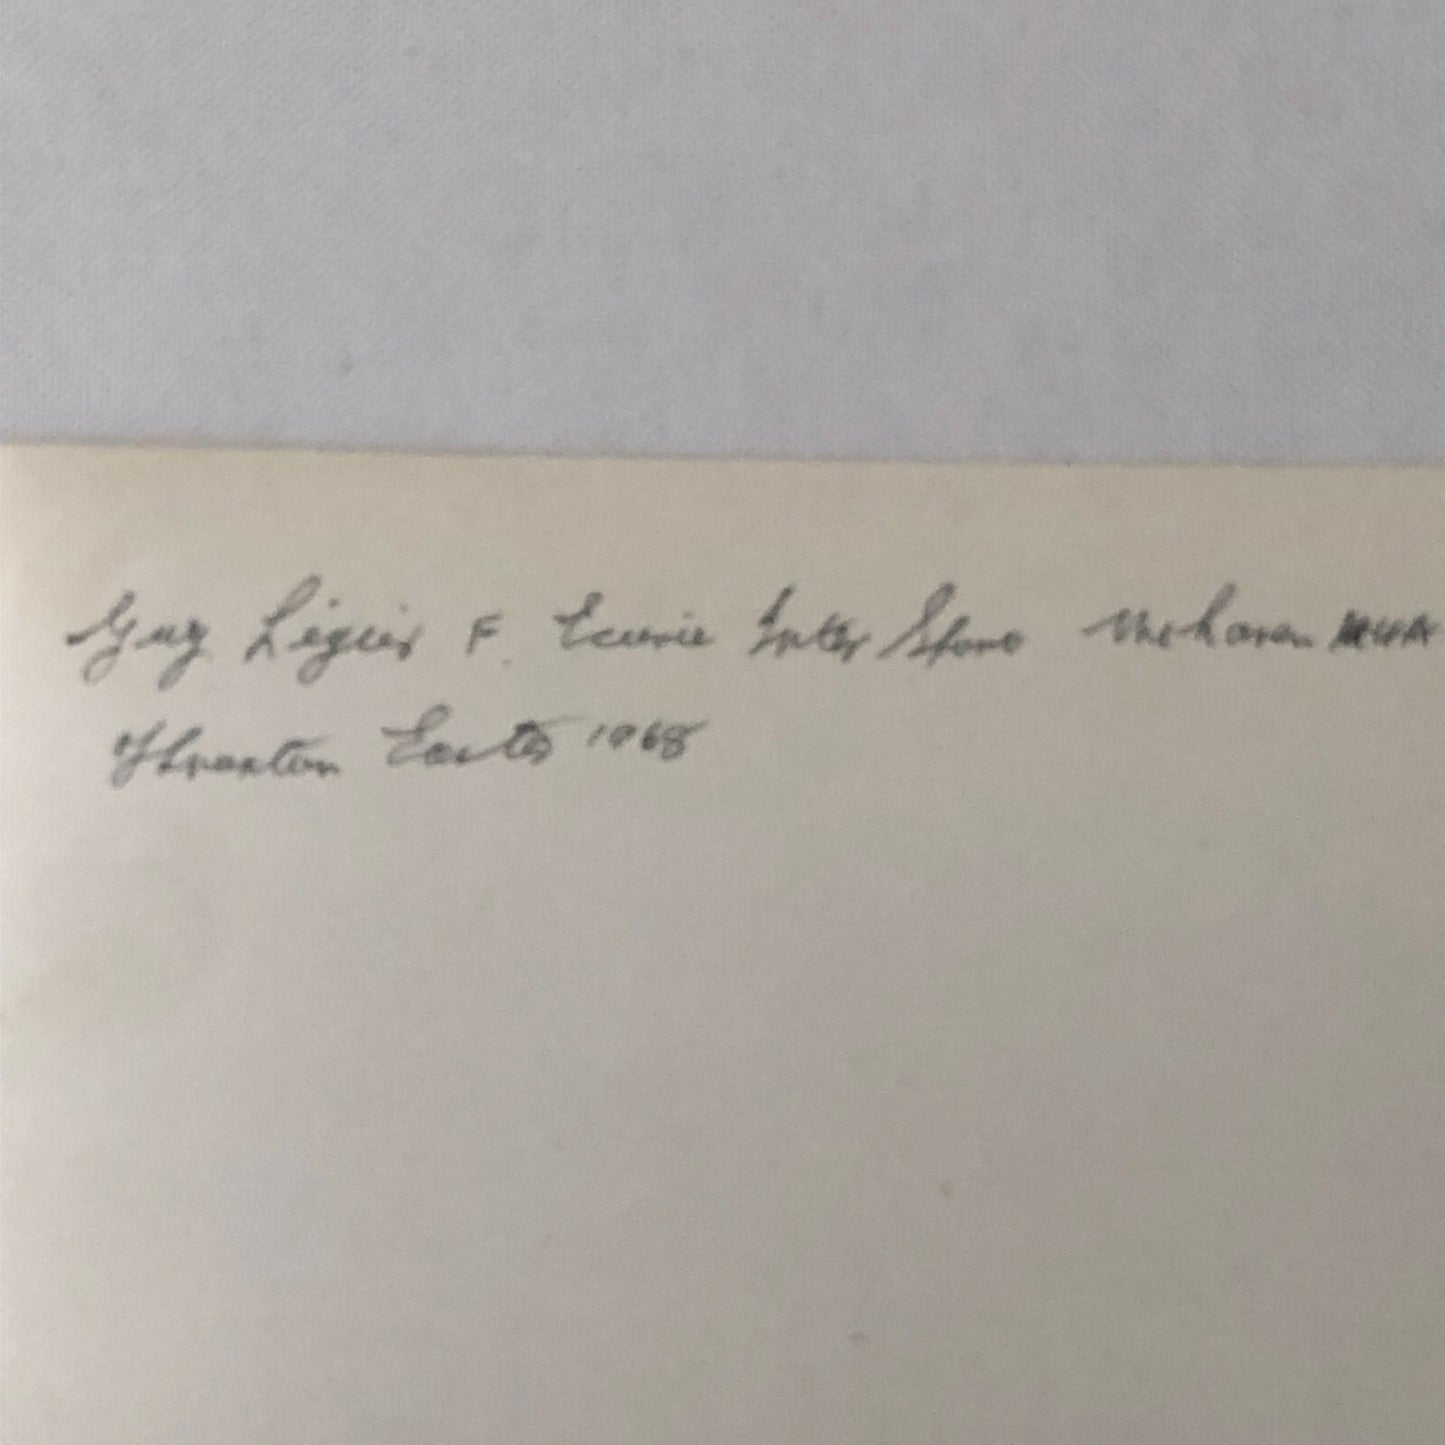 Guy Ligier F. Ecurie Inter Sport McLaren M4A
Thruxton Easter 1968